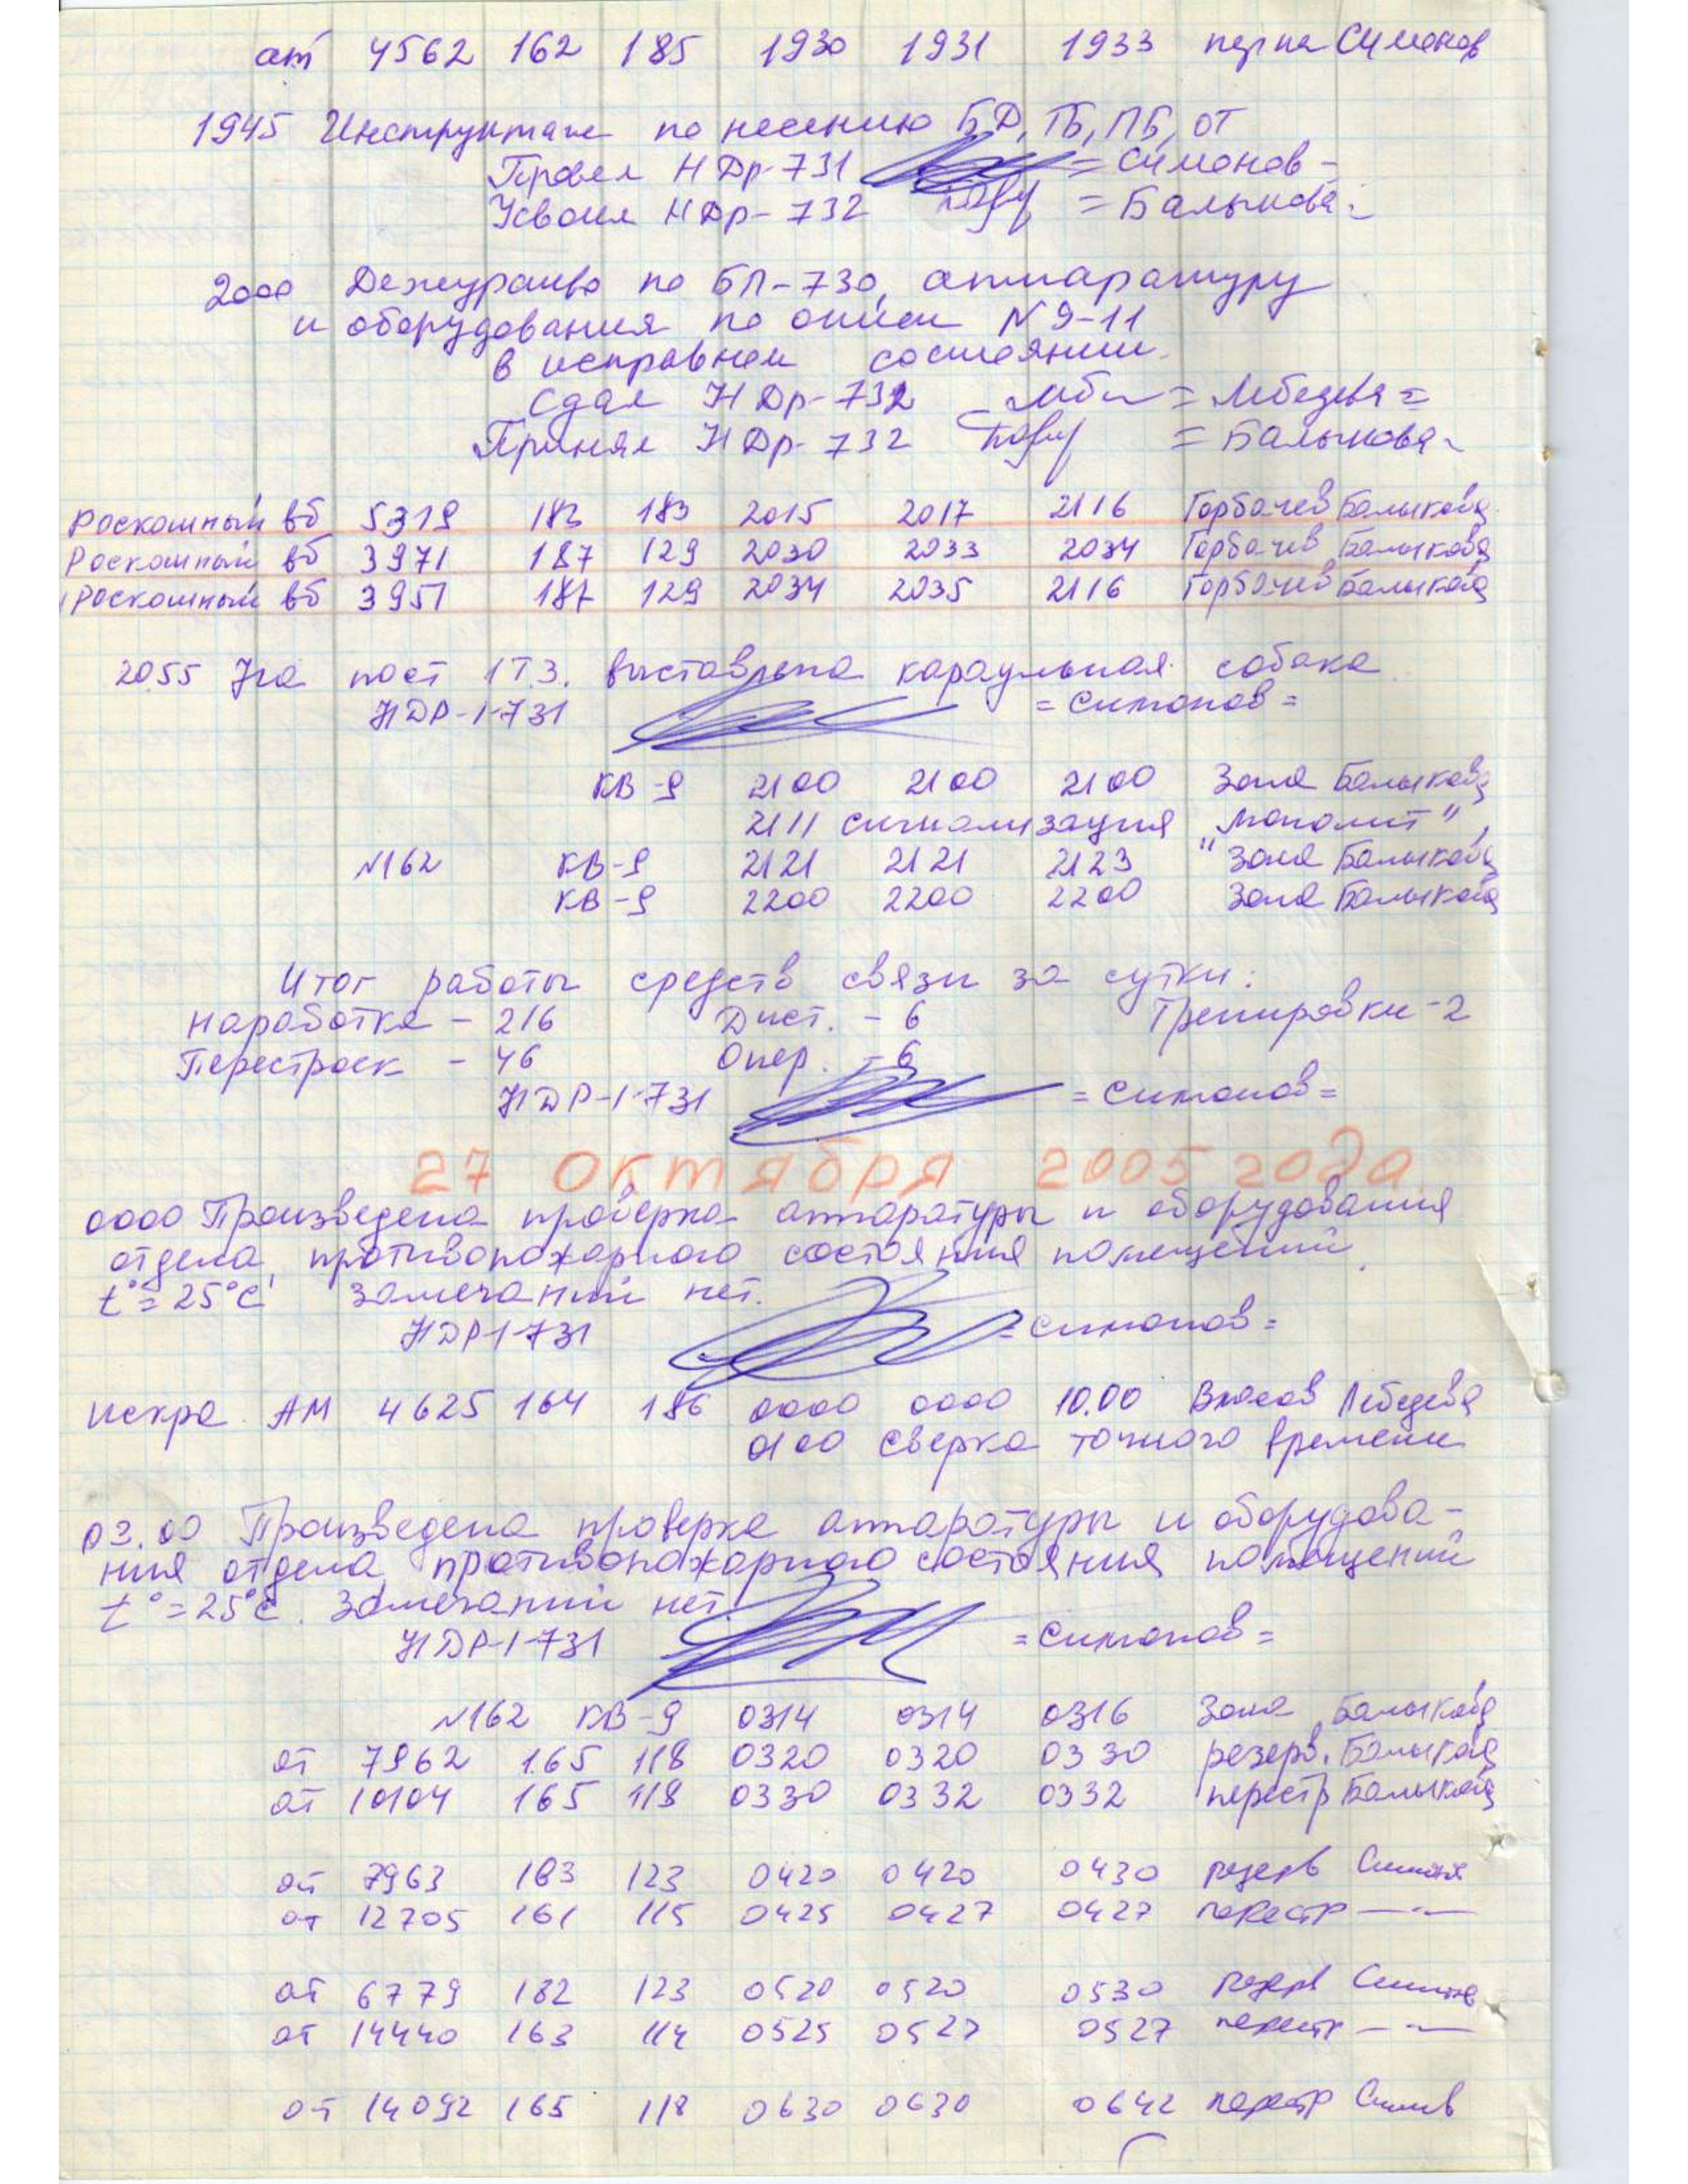 ат 4562 162 185 1930 1931 1933 Симонов
1945 Инструктаж по несению БД, ТБ, ПБ, ОТ
Провел НДр-731 = Симонов -
Усвоил НДр-732 = Балыкова -
2000 Дежурство по БП-730, аппаратуру
и оборудования по описи N 9-11
в исправном состоянии.
Сдал НДр-732 = Лебедева =
Принял НДр-732 = Балыкова -
Роскошный вб 5319 183 183 2015 2017 2116 Горбачев Балыкова
Роскошный вб 3971 187 129 2030 2033 2034 Горбачев Балыкова
Роскошный вб 3957 187 129 2034 2035 2116 Горбачев Балыкова
2055 На пост 1Т.3. выставлена караульная собака
НДР-1-731 = Симонов =
КВ-9 2100 2100 2100 Зона Балыкова
2111 сигнализация "Монолит"
N162 КВ-9 2121 2121 2123 "Зона Балыкова
КВ-9 2200 2200 2200 Зона Балыкова
Итог работы средств связи за сутки:
Наработка - 216 Дист. - 6 Тренировки - 2
Перестроек - 46 Опер. - 6
НДР-1-731 = Симонов =
27 октября 2005 года.
0000 Произведена проверка аппаратуры и оборудования
отдела, противопожарного состояния помещений.
t°=25°C Замечаний нет.
НДР-1-731 = Симонов =
Искра АМ 4625 164 186 0000 0000 10.00 Власов Лебедева
0100 сверка точного времени
03.00 Произведена проверка аппаратуры и оборудова-
ния отдела, противопожарного состояния помещений
t°=25°C. Замечаний нет.
НДР-1-731 = Симонов =
N162 КВ-9 0314 0314 0316 Зона Балыкова
ат 7962 165 118 0320 0320 0330 резерв. Балыкова
ат 10104 165 118 0330 0332 0332 перестр Балыкова
ат 7963 183 123 0420 0420 0430 резерв Симонов
ат 12705 161 115 0425 0427 0427 перестр —"—
ат 6779 182 123 0520 0520 0530 резерв Симонов
ат 14440 163 114 0525 0527 0527 перестр —"—
ат 14092 165 118 0630 0630 0642 перестр Симонов